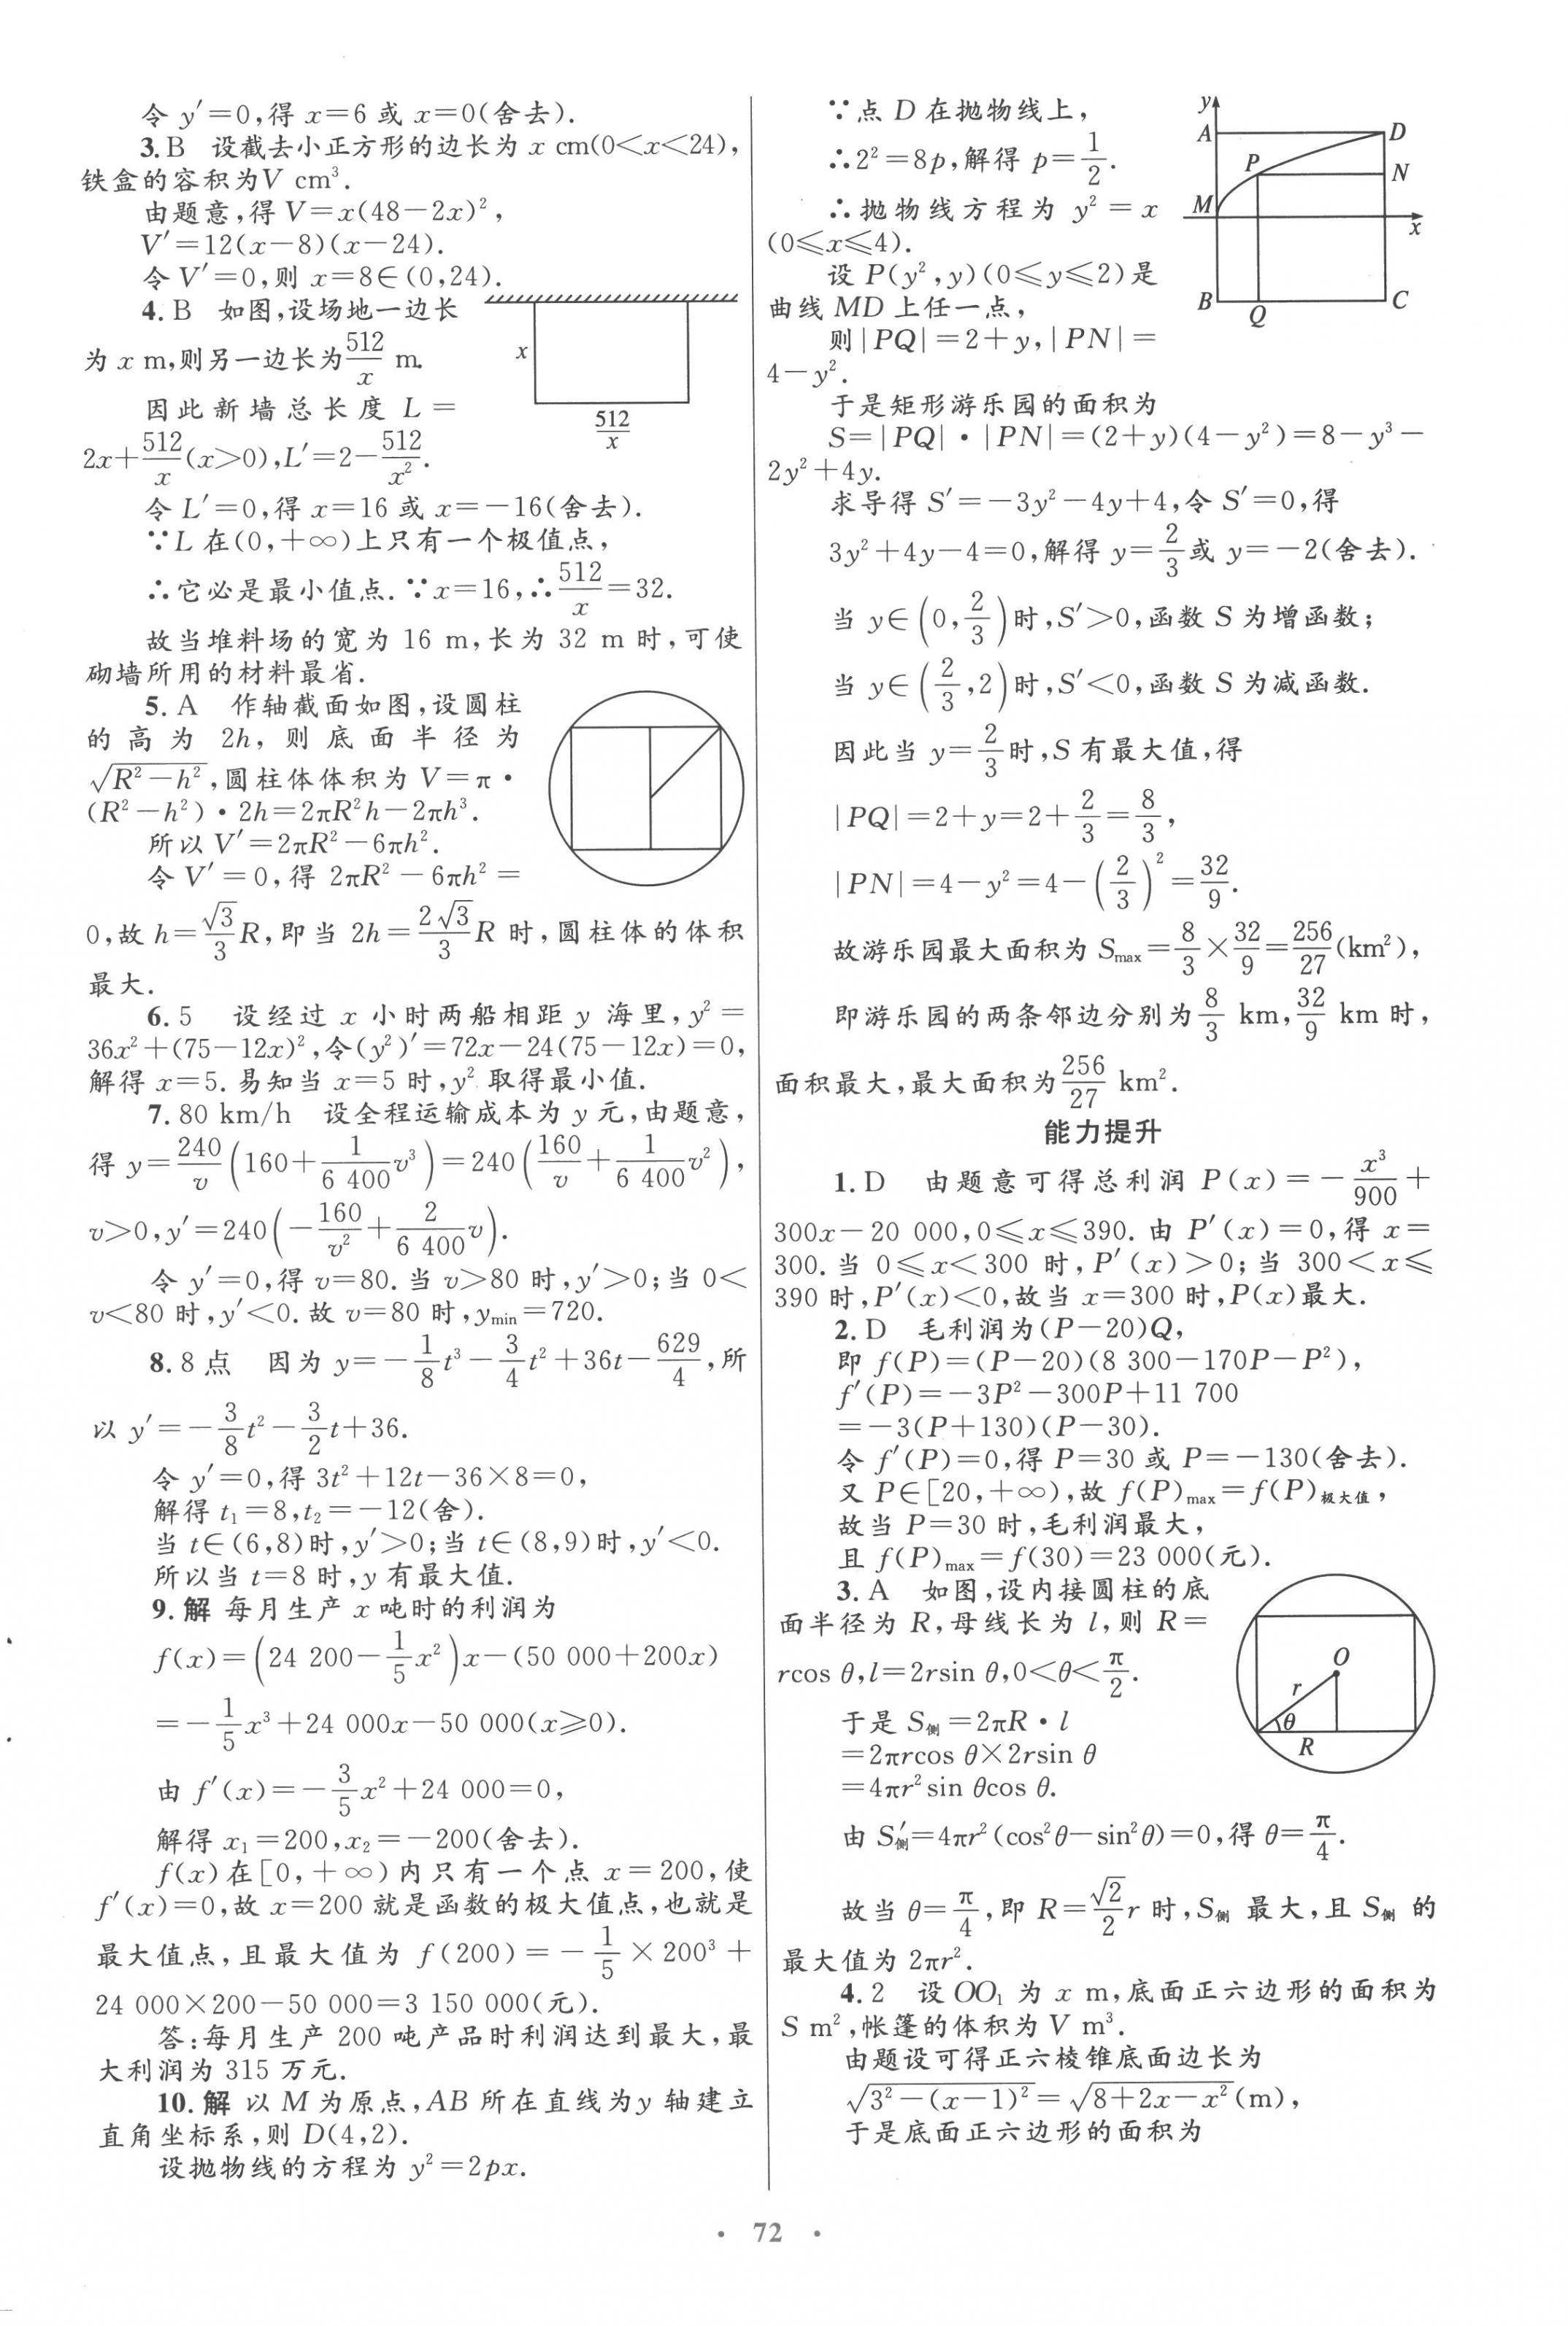 令 y′=0,得 x=6 或 x=0(舍去).
3.B 设截去小正方形的边长为 x cm(0<x<24),
铁盒的容积为V cm³.
由题意,得 V=x(48-2x)²,
V′=12(x-8)(x-24).
令 V′=0,则 x=8∈(0,24).
4.B 如图,设场地一边长
为 x m,则另一边长为512/x m.
因此新墙总长度 L=
2x+512/x(x>0),L′=2-512/x².
x
512/x
令 L′=0,得 x=16 或 x=-16(舍去).
∵L 在(0,+∞)上只有一个极值点,
∴它必是最小值点.∵x=16,∴512/x=32.
故当堆料场的宽为 16 m,长为 32 m 时,可使
砌墙所用的材料最省.
5.A 作轴截面如图,设圆柱
的高为 2h,则底面半径为
√(R²-h²),圆柱体体积为 V=π·
(R²-h²)·2h=2πR²h-2πh³.
所以 V′=2πR²-6πh².
令 V′=0,得 2πR²-6πh²=
0,故 h=√3/3R,即当 2h=2√3/3R 时,圆柱体的体积
最大.
6.5 设经过 x 小时两船相距 y 海里,y²=
36x²+(75-12x)²,令(y²)′=72x-24(75-12x)=0,
解得 x=5.易知当 x=5 时,y²取得最小值.
7.80 km/h 设全程运输成本为 y 元,由题意,
得 y=240/v(160+1/6 400v³)=240(160/v+1/6 400v²),
v>0,y′=240(-160/v²+2/6 400v).
令 y′=0,得 v=80.当 v>80 时,y′>0;当 0<
v<80 时,y′<0.故 v=80 时,ymin=720.
8.8 点 因为 y=-1/8t³-3/4t²+36t-629/4,所
以 y′=-3/8t²-3/2t+36.
令 y′=0,得 3t²+12t-36×8=0,
解得 t₁=8,t₂=-12(舍).
当 t∈(6,8)时,y′>0;当 t∈(8,9)时,y′<0.
所以当 t=8 时,y 有最大值.
9.解 每月生产 x 吨时的利润为
f(x)=(24 200-1/5x²)x-(50 000+200x)
=-1/5x³+24 000x-50 000(x≥0).
由 f′(x)=-3/5x²+24 000=0,
解得 x₁=200,x₂=-200(舍去).
f(x)在[0,+∞)内只有一个点 x=200,使
f′(x)=0,故 x=200 就是函数的极大值点,也就是
最大值点,且最大值为 f(200)=-1/5×200³+
24 000×200-50 000=3 150 000(元).
答:每月生产 200 吨产品时利润达到最大,最
大利润为 315 万元.
10.解 以 M 为原点,AB 所在直线为y 轴建立
直角坐标系,则 D(4,2).
设抛物线的方程为 y²=2px.
∵点 D 在抛物线上,
∴2²=8p,解得 p=1/2.
∴抛物线方程为 y²=x
(0≤x≤4).
设 P(y²,y)(0≤y≤2)是
曲线 MD 上任一点,
则|PQ|=2+y,|PN|=
4-y².
y
A D
P
N
M
x
B Q C
于是矩形游乐园的面积为
S=|PQ|·|PN|=(2+y)(4-y²)=8-y³-
2y²+4y.
求导得 S′=-3y²-4y+4,令 S′=0,得
3y²+4y-4=0,解得 y=2/3或 y=-2(舍去).
当 y∈(0,2/3)时,S′>0,函数 S 为增函数;
当 y∈(2/3,2)时,S′<0,函数 S 为减函数.
因此当 y=2/3时,S 有最大值,得
|PQ|=2+y=2+2/3=8/3,
|PN|=4-y²=4-(2/3)²=32/9.
故游乐园最大面积为 Smax=8/3×32/9=256/27(km²),
即游乐园的两条邻边分别为8/3 km,32/9 km 时,
面积最大,最大面积为256/27 km².
能力提升
1.D 由题意可得总利润 P(x)=-x³/900+
300x-20 000,0≤x≤390.由 P′(x)=0,得 x=
300.当 0≤x<300 时,P′(x)>0;当 300<x≤
390 时,P′(x)<0,故当 x=300 时,P(x)最大.
2.D 毛利润为(P-20)Q,
即 f(P)=(P-20)(8 300-170P-P²),
f′(P)=-3P²-300P+11 700
=-3(P+130)(P-30).
令 f′(P)=0,得 P=30 或 P=-130(舍去).
又 P∈[20,+∞),故 f(P)max=f(P)极大值,
故当 P=30 时,毛利润最大,
且 f(P)max=f(30)=23 000(元).
3.A 如图,设内接圆柱的底
面半径为 R,母线长为 l,则 R=
rcos θ,l=2rsin θ,0<θ<π/2.
于是 S侧=2πR·l
=2πrcos θ×2rsin θ
=4πr²sin θcos θ.
O
r
θ
R
由 S′侧=4πr²(cos²θ-sin²θ)=0,得 θ=π/4.
故当 θ=π/4,即 R=√2/2r 时,S侧 最大,且 S侧 的
最大值为 2πr².
4.2 设OO₁ 为 x m,底面正六边形的面积为
S m²,帐篷的体积为 V m³.
由题设可得正六棱锥底面边长为
√(3²-(x-1)²)=√(8+2x-x²)(m),
于是底面正六边形的面积为
· 72 ·